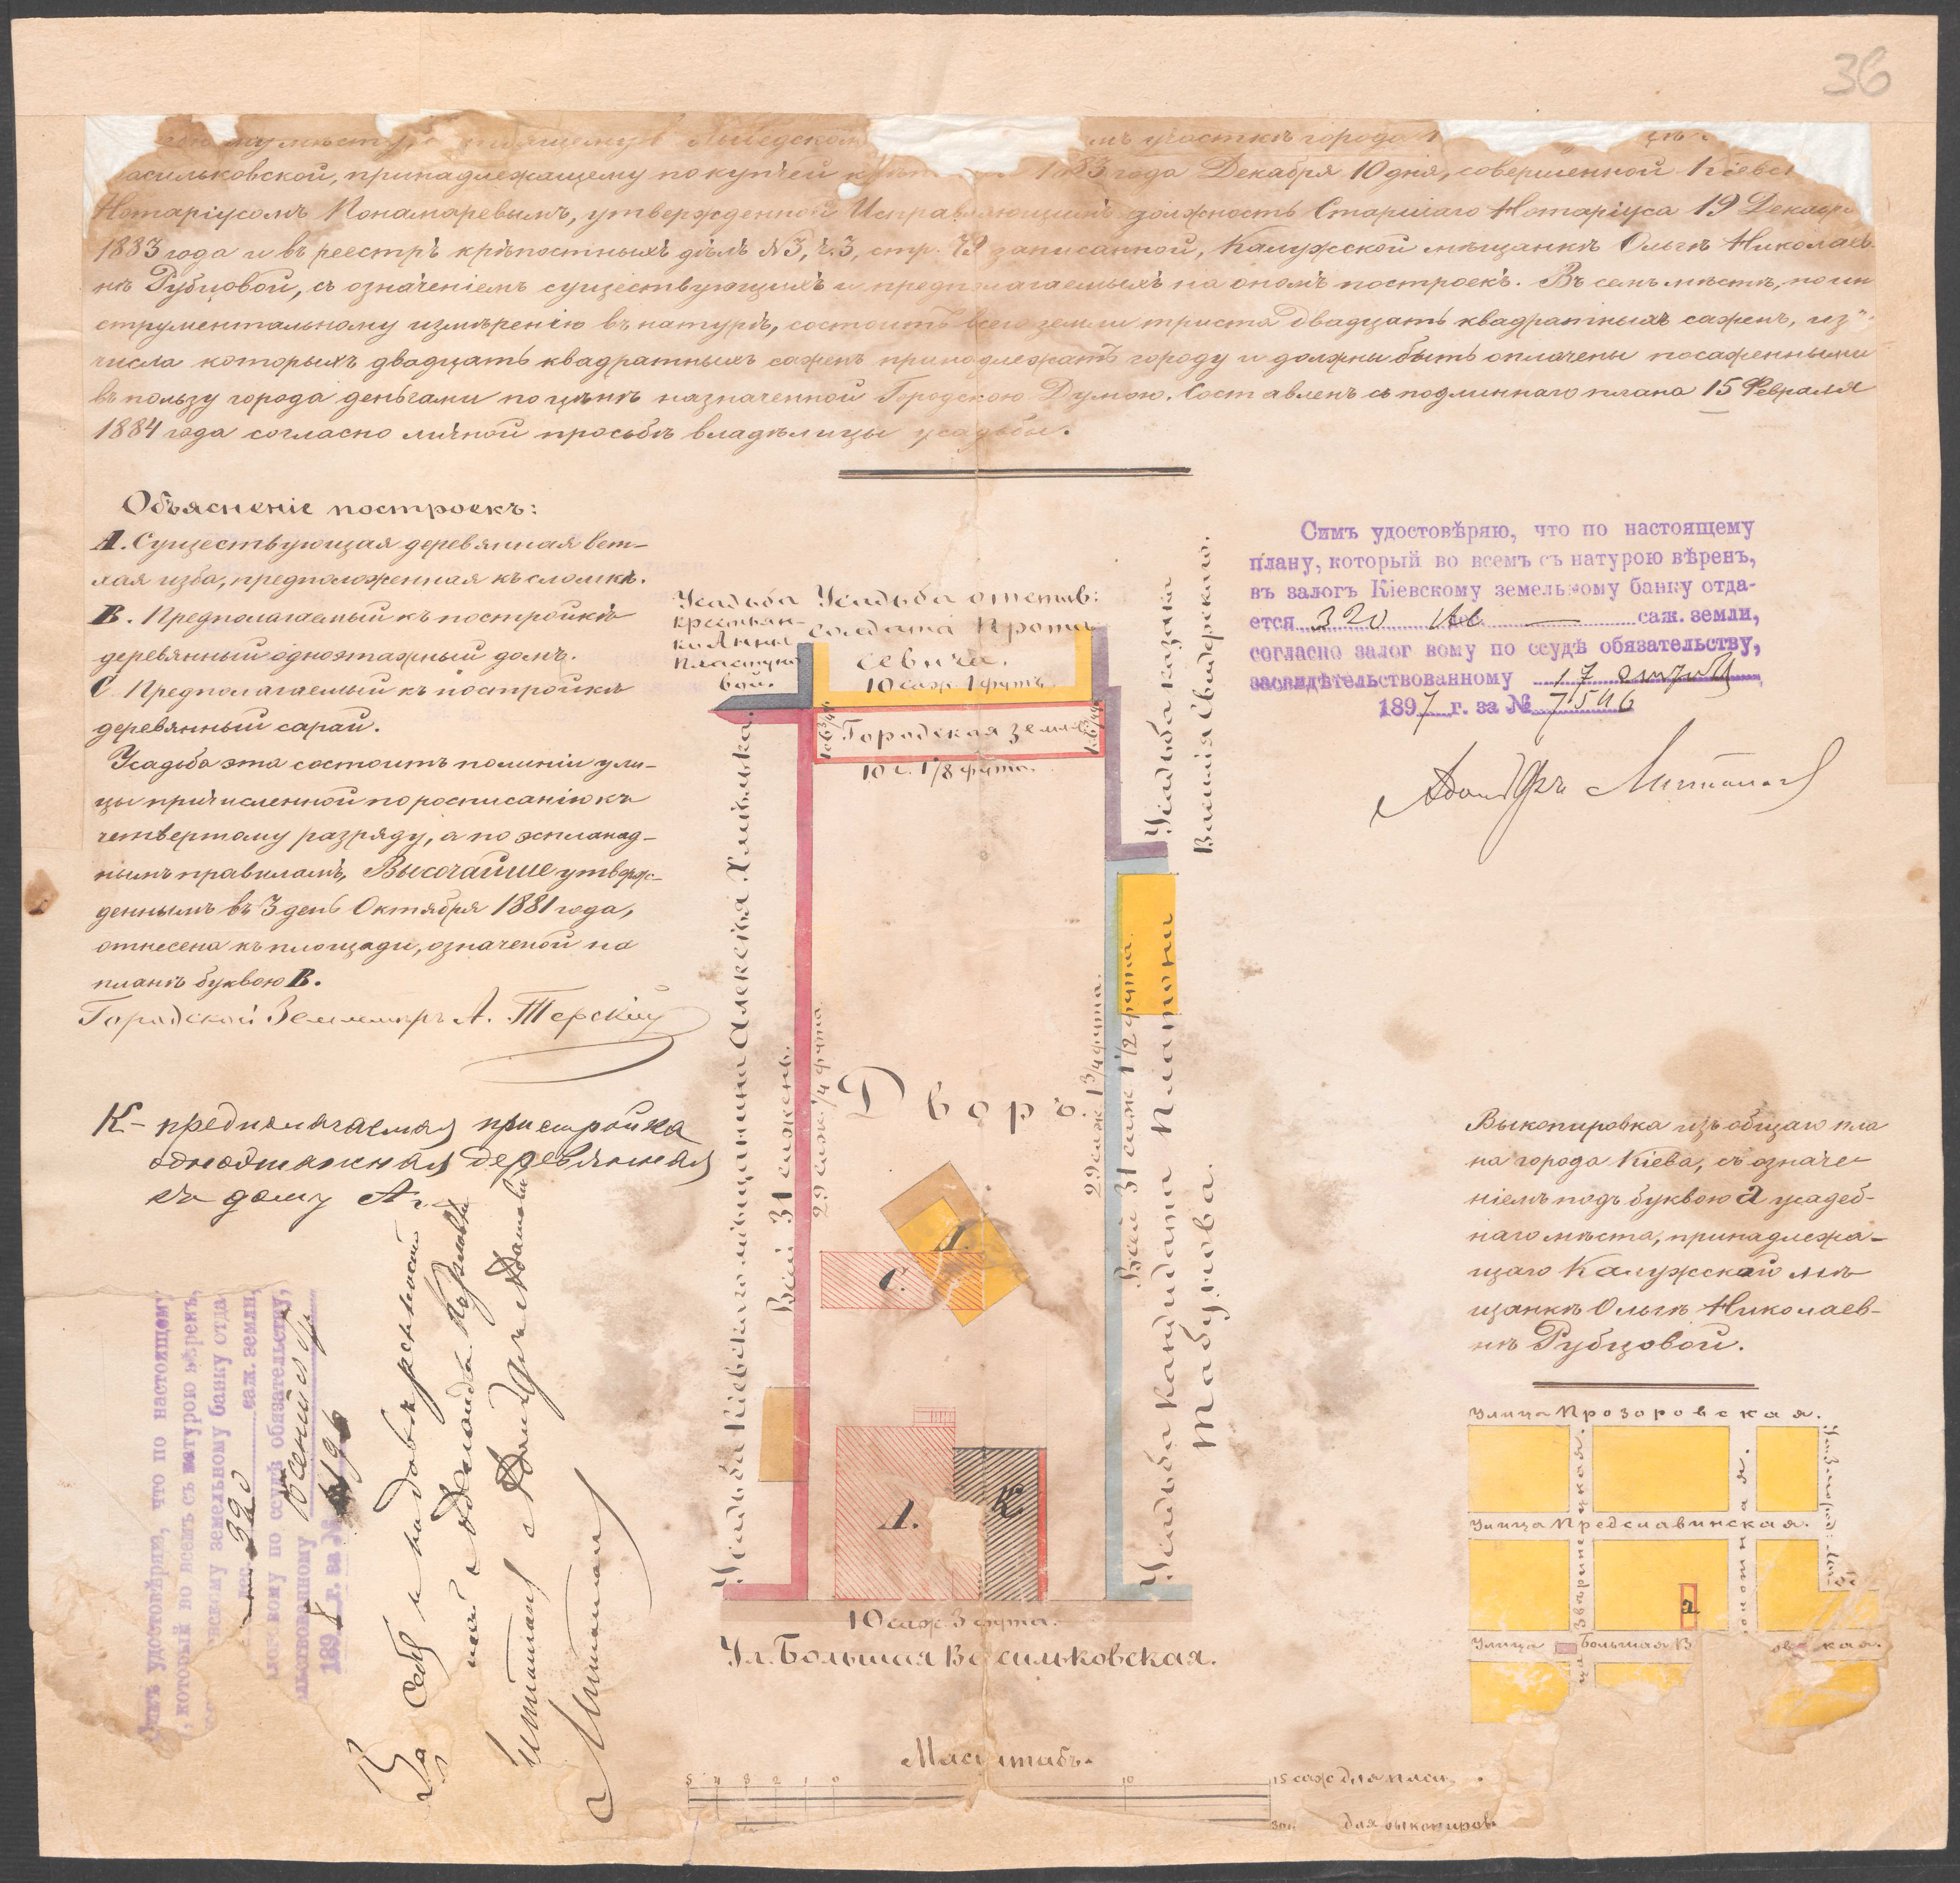 36
участкѣ города
асильковской, принадлежащему по купчей 1883 года Декабря 10 дня, совершенной Кіевс
Нотаріусомъ Понамаревымъ, утвержденной Исправляющимъ должность Старшаго Нотаріуса 19 Декабр
1883 года и въ реестръ крѣпостныхъ дѣлъ № 3, ч. 3, стр. записанной, Калужской мѣщанкѣ Ольгѣ Николаев
нѣ Рубцовой, съ означеніемъ существующихъ и предполагаемыхъ на ономъ построекъ. Въ семъ мѣстѣ, по ин
струментальному измѣренію въ натурѣ, состоитъ всего земли триста двадцать квадратныхъ сажень, изъ
числа которыхъ двадцать квадратныхъ сажень принадлежатъ городу и должны быть оплачены посаженными
въ пользу города деньгами по цѣнѣ назначенной Городскою Думою. Составленъ съ подлиннаго плана 15 Февраля
1884 года согласно личной просьбѣ владѣлицы усадьбы.
Объясненіе построекъ:
А. Существующая деревянная вет-
хая изба, предположенная къ сломкѣ.
В. Предполагаемый къ постройкѣ
деревянный одноэтажный домъ.
С. Предполагаемый къ постройкѣ
деревянный сарай.
Усадьба эта состоитъ по линіи ули-
цы причисленной по росписанію къ
четвертому разряду, а по эспланад-
нымъ правиламъ, Высочайше утверж-
деннымъ въ 3 день Октября 1881 года,
отнесена къ площади, означеной на
планѣ буквою В.
Городской Землемѣръ А. Терскій
К - предполагаемая пристройка
одноэтажная деревянная
къ дому А.
Симъ удостовѣряю, что по настоящему
плану, который во всемъ съ натурою вѣренъ,
въ залогъ Кіевскому земельному банку отда-
ется 320 кв. саж. земли,
согласно залоговому по ссудѣ обязательству,
засвидѣтельствованному 17
1897 г. за № 7546
Усадьба
крестьян-
ки Анны
Пластуно
вой.
Усадьба отстав:
солдата Прота
севича.
10 саж. 1 футъ
Городская земля
10 с. 1 1/8 фута.
Усадьба Кіевскаго мѣщанина Алексѣя Хмѣлька.
Всей 31 сажень.
29 саж. 1/4 фута
29 саж. 1 3/4 фута.
Всей 31 саж 1 1/2 фута
Усадьба кандидата Платона
Табунова.
Усадьба казака
Василія Свидерскаго.
Дворъ.
А.
С.
А.
К
10 саж 3 фута.
Ул. Большая Васильковская.
Масштабъ.
5 4 3 2 1 0 10 15 саж для план.
для выкопиров.
Выкопировка изъ общаго пла
на города Кіева, съ означе
ніемъ подъ буквою а усадеб-
наго мѣста, принадлежа-
щаго Калужской мѣ
щанкѣ Ольгѣ Николаев-
нѣ Рубцовой.
Улица Прозоровская.
Улица Предславинская.
Звѣринецкая.
а
Улица Большая В ов кая.
Симъ удостовѣряю, что по настоящему
, который во всемъ съ натурою вѣренъ,
вскому земельному банку отда
320 саж. земли,
логовому по ссудѣ обязательству,
льствованному 10 Сентября
189 г. за №
За себя и по довѣренности